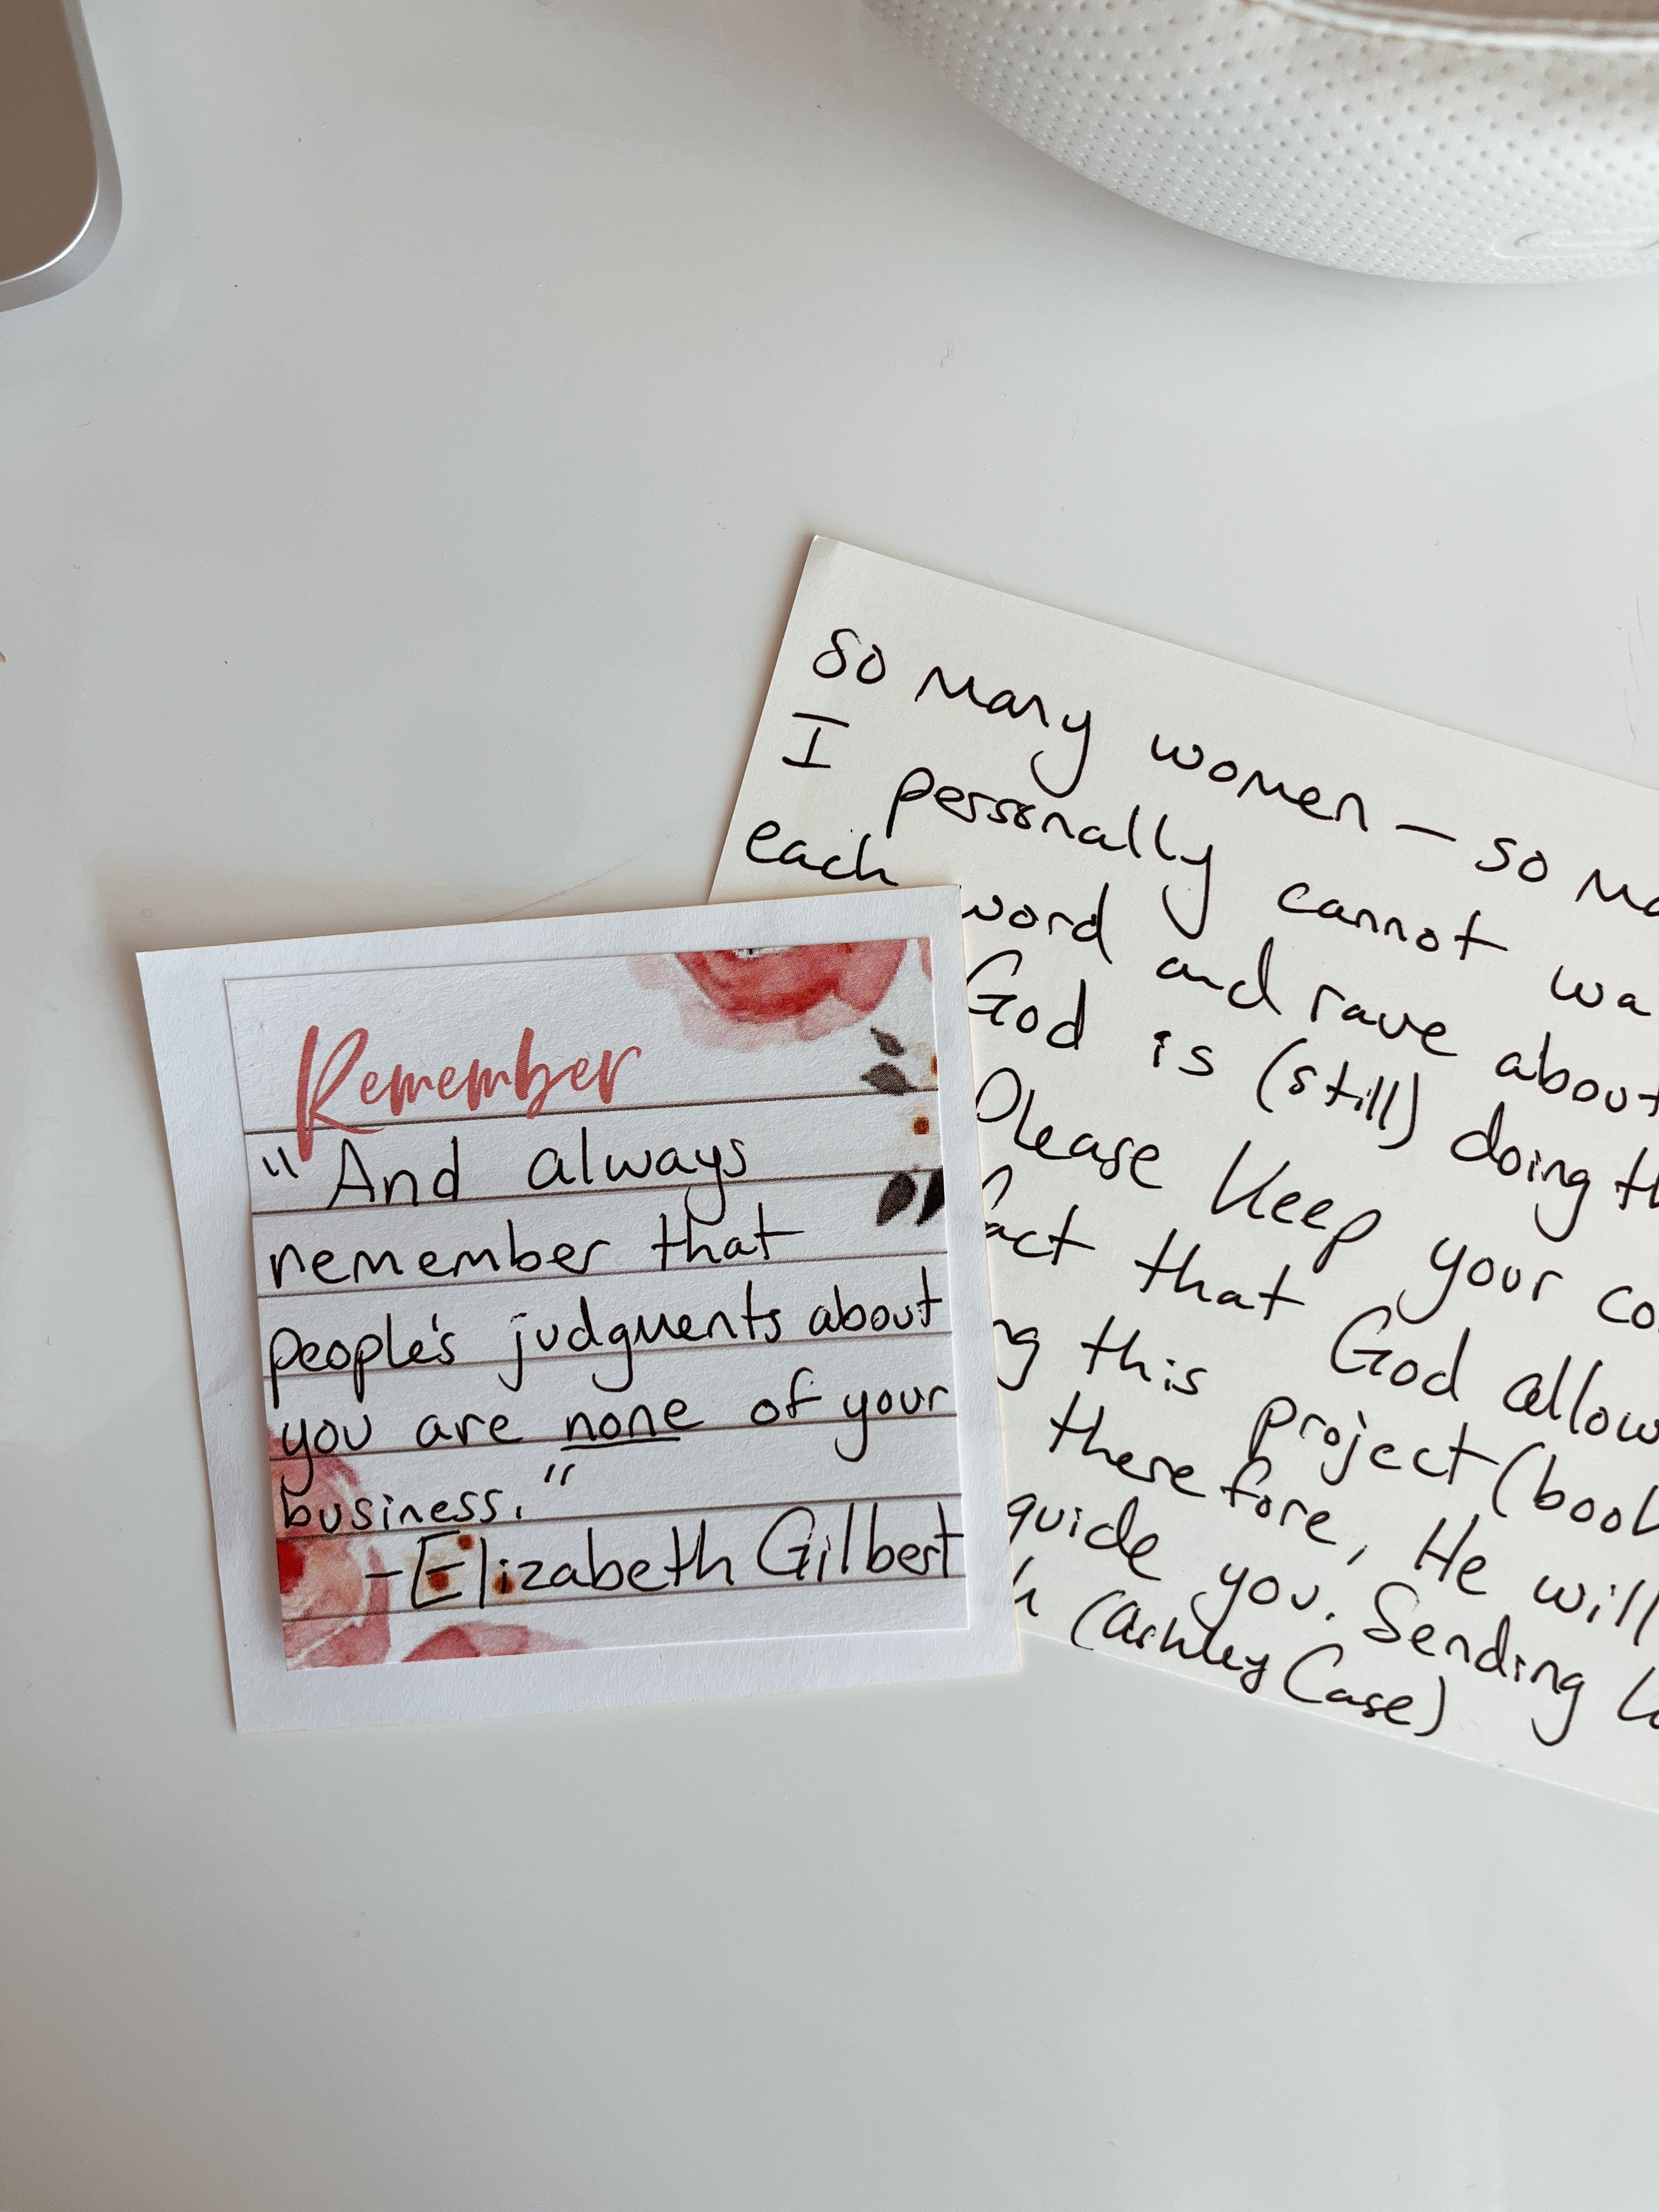 Remember
“And always
remember that
people's judgments about
you are none of your
business.”
-Elizabeth Gilbert
so many women — so
I personally cannot
each word and rave about
God is (still) doing
Please keep your
fact that God
this project
therefore, He will
guide you. Sending
(Ashley Case)